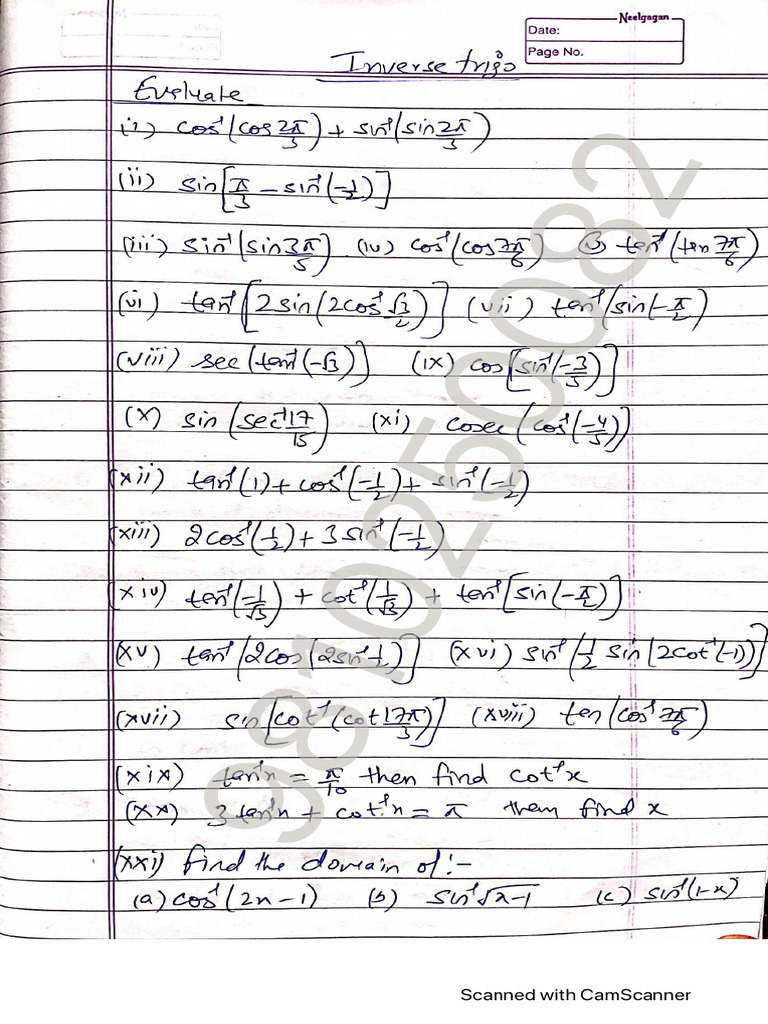 Neelgagan
Date:
Page No.
Inverse trigo
Evaluate
(i) cos⁻¹(cos 2π/3) + sin⁻¹(sin 2π/3)
(ii) sin[π/3 − sin⁻¹(−1/2)]
(iii) sin⁻¹(sin 3π/5) (iv) cos⁻¹(cos 7π/6) (v) tan⁻¹(tan 7π/6)
(vi) tan⁻¹[2 sin(2cos⁻¹ √3/2)] (vii) tan⁻¹(sin(−π/2)
(viii) sec(tan⁻¹(−√3)] (ix) cos[sin⁻¹(−3/5)]
(x) sin(sec⁻¹ 17/15) (xi) cosec(cos⁻¹(−4/5)]
(xii) tan⁻¹(1) + cos⁻¹(−1/2) + sin⁻¹(−1/2)
(xiii) 2cos⁻¹(1/2) + 3 sin⁻¹(−1/2)
(xiv) tan⁻¹(−1/√3) + cot⁻¹(1/√3) + tan⁻¹[sin(−π/2)]
(xv) tan⁻¹[2cos(2sin⁻¹ 1/2)] (xvi) sin⁻¹(1/2 sin[2cot⁻¹(−1))]
(xvii) sin[cot⁻¹(cot 17π/3)] (xviii) tan(cos⁻¹ 7π/6)
(xix) tan⁻¹x = π/10 then find cot⁻¹x
(xx) 3 tan⁻¹x + cot⁻¹x = π then find x
(xxi) find the domain of:-
(a) cos⁻¹(2x−1) (b) sin⁻¹√x−1 (c) sin⁻¹(1−x)
9810250082
Scanned with CamScanner